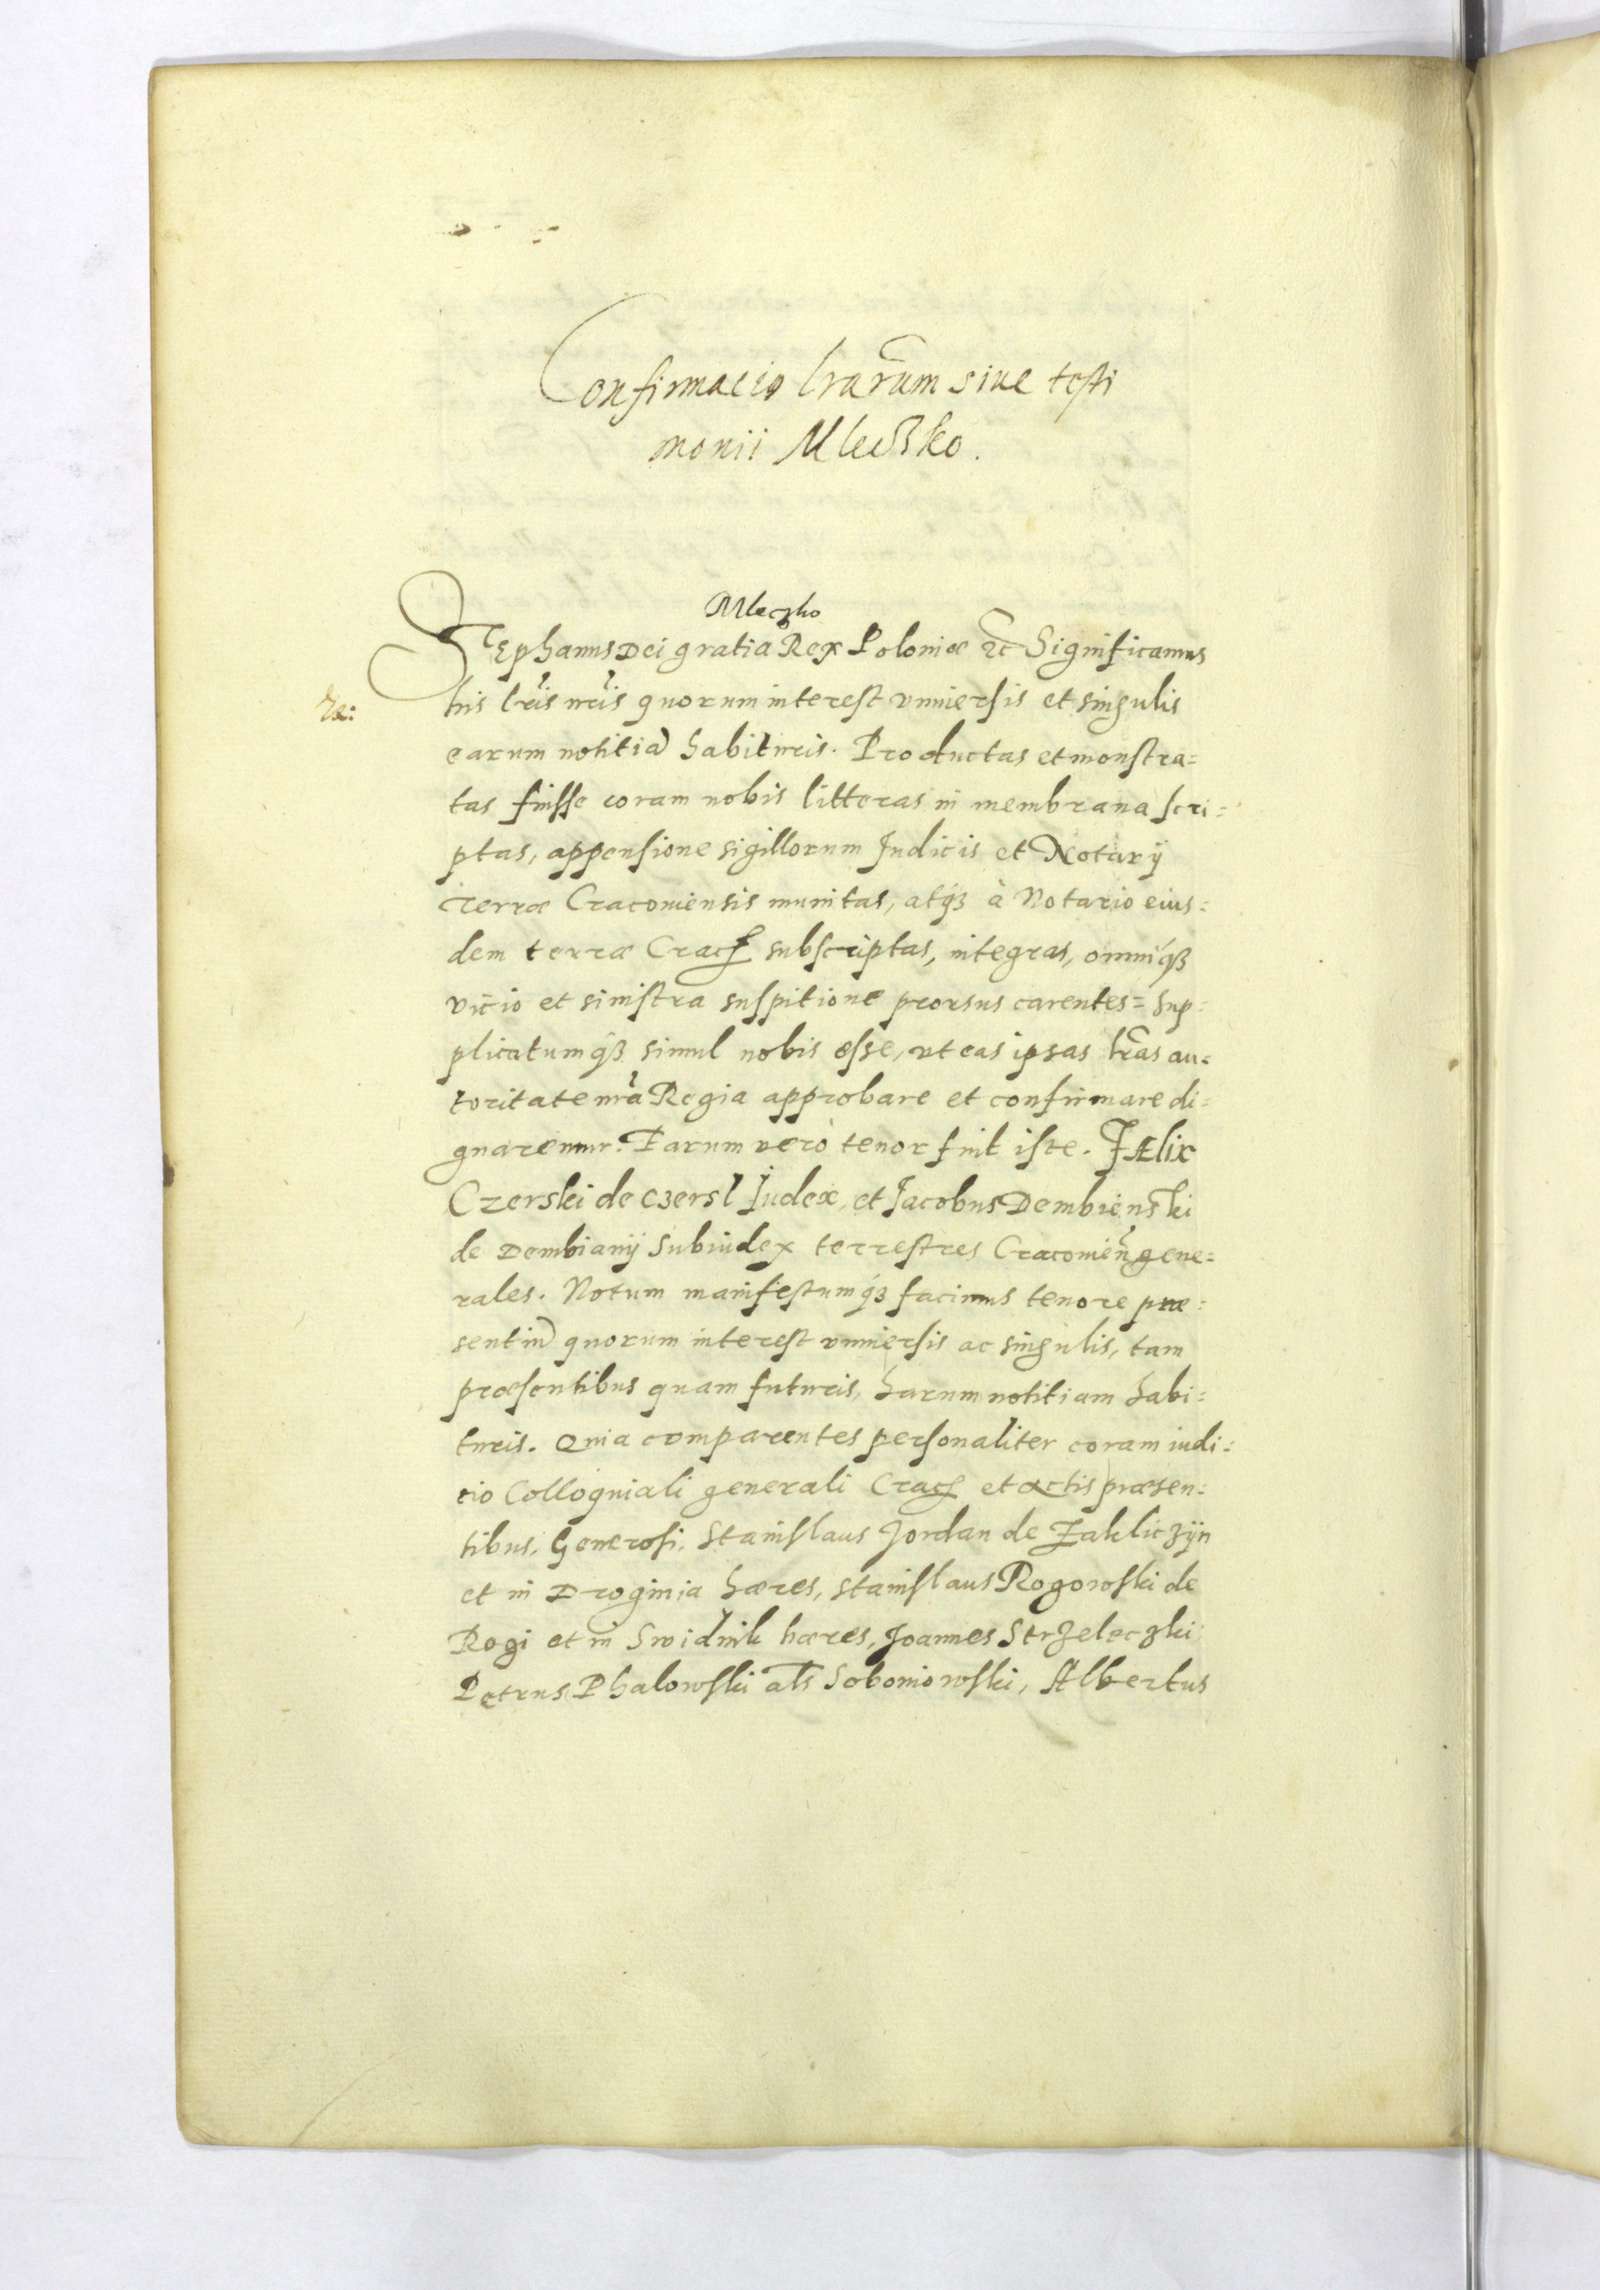 Confirmacio lrarum siue testi
monii Mleczko.
Mleczko
Stephanus Dei gratia Rex Poloniæ etc Significamus
his lris nris quorum interest vniuersis et singulis
earum notitiã habituris. Productas et monstra=
tas fuisse coram nobis litteras in membrana scri=
ptas, appensione sigillorum Judicis et Notarij
Terræ Cracouiensis munitas, atq3 à Notario eius=
dem terræ Crac subscriptas, integras, omniq3
vicio et sinistra suspitione prorsus carentes= Sup=
plicatumq3 simul nobis esse, vt eas ipsas lras au=
toritate nra Regia approbare et confirmare di=
gnaremur. Earum verò tenor fuit iste. FÆlix
Czerski de Czersl Judex, et Jacobus Dembienski
de Dembiany Subiudex terrestres Cracouien gene=
rales. Notum manifestumq3 facimus tenore præ=
sentiũ quorum interest vniuersis ac singulis, tam
præsentibus quam futuris, harum notitiam habi=
turis. Quia comparentes personaliter coram iudi=
cio Colloquiali generali Crac et actis præsen=
tibus, Generosi, Stanislaus Jordan de Zakliczÿn
et in Droginia hæres, Stanislaus Rogowski de
Rogi et in Swidnik hæres, Joannes Strzeleczki
Petrus Phalowski als Soboniowski, Albertus